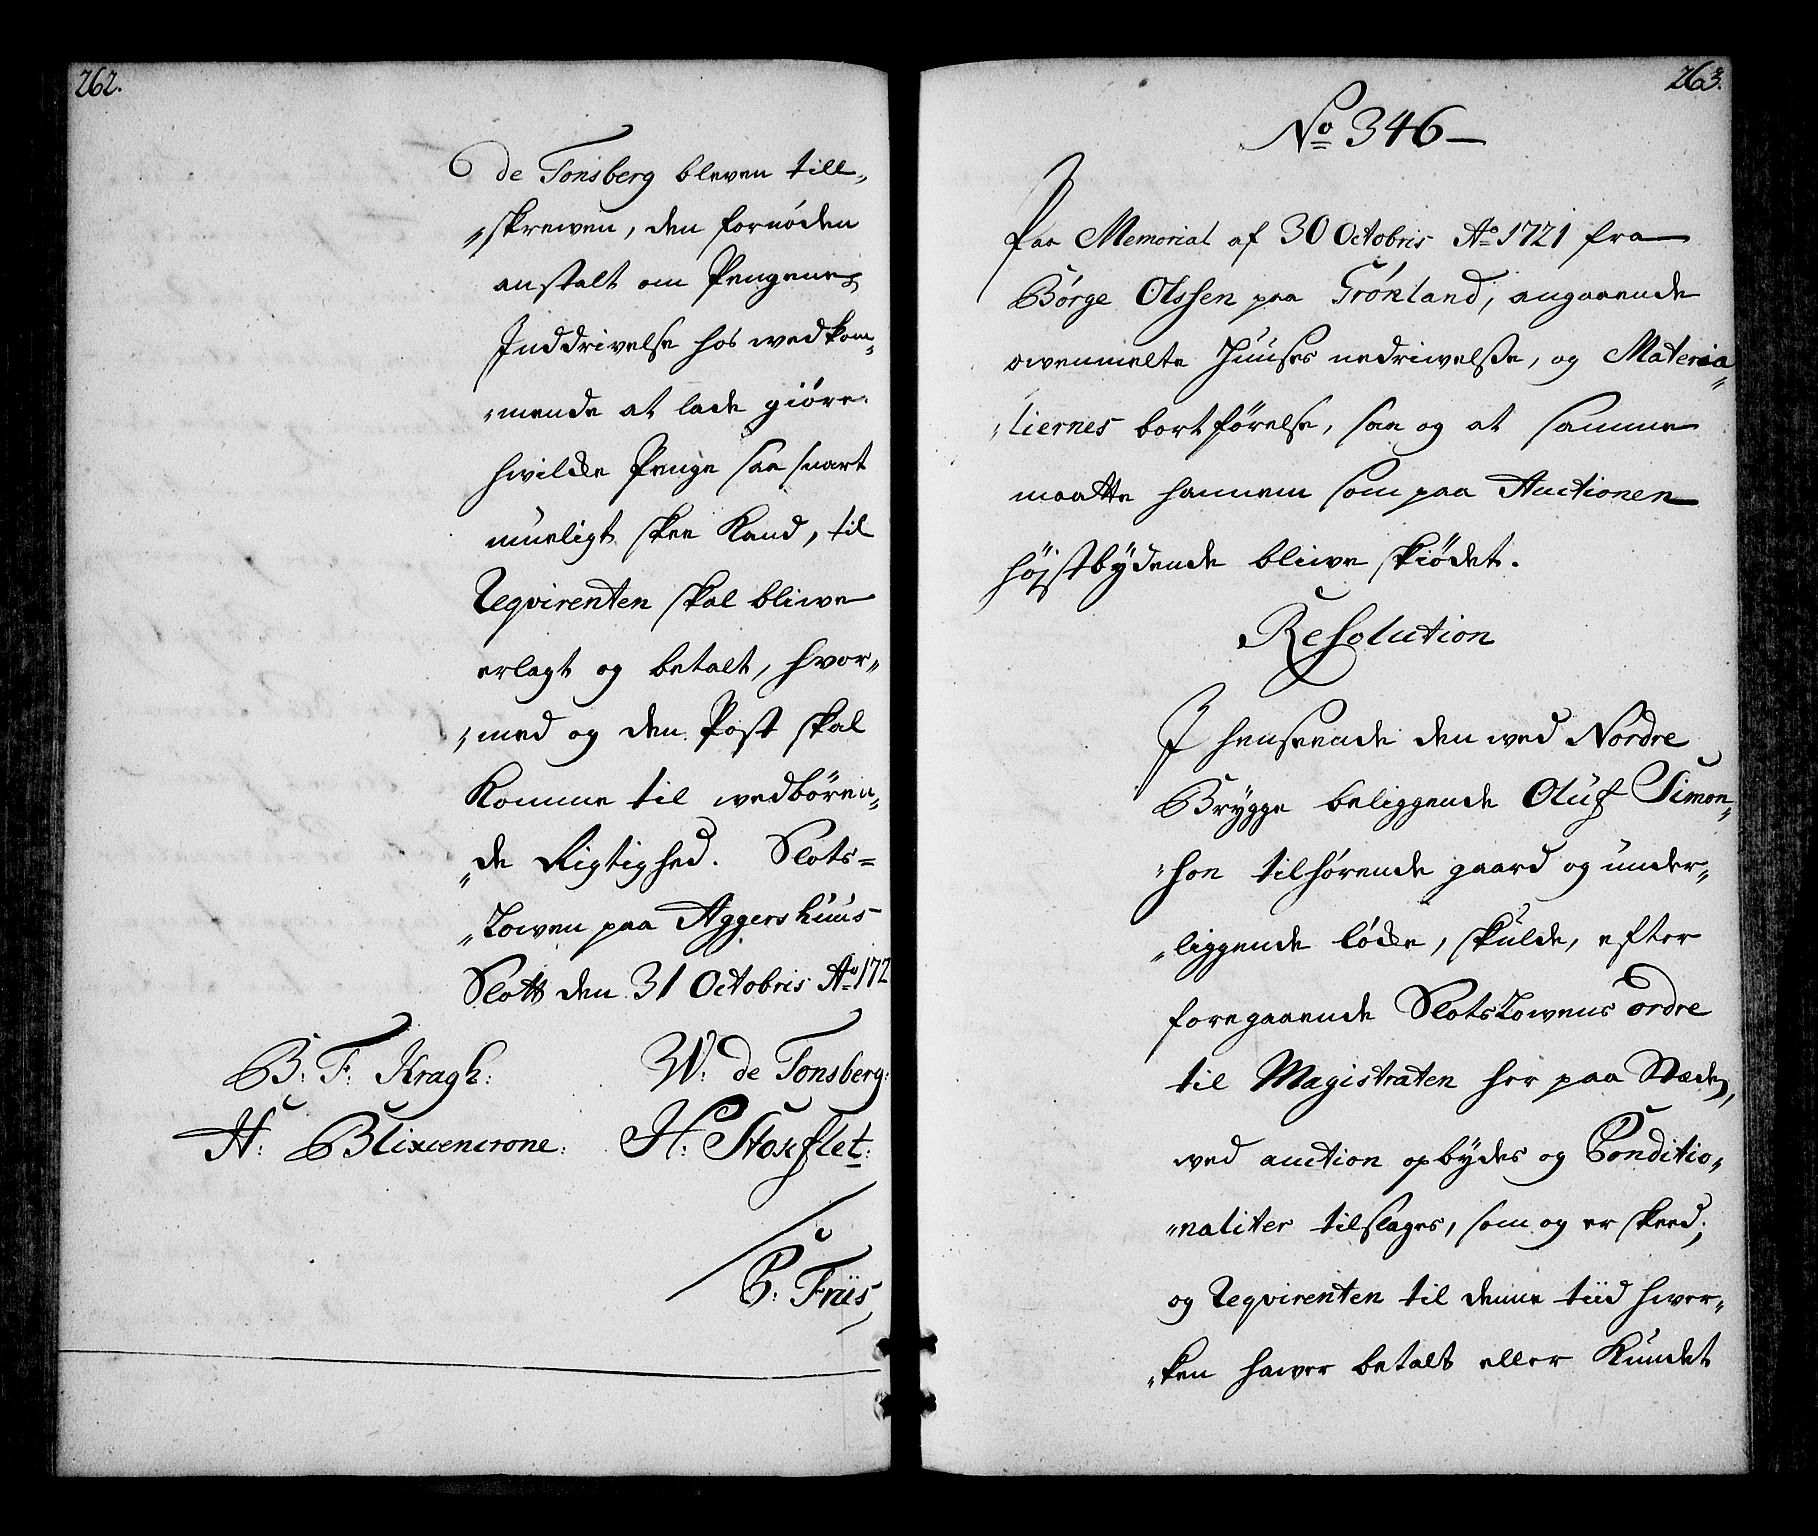 262.
de Tonsberg bleven till„
„skrewen, den fornöden
anstalt om Pengenes
Inddrivelse hos wedkom„
„mende at lade giöre.
hwilcke Penge saa snart
mueligt skee Kand, til
Reqvirenten skal bliwe
erlagt og betalt, hvor„
„med og den Post skal
Komme til wedbören„
„de Rigtighed. Slots=
„Lowen paa Aggershuus
Slott den 31 Octobris Ao 172
B: F: Kragh: W: de Tonsberg:
H: Blixencrone: H: Stokflet:
B: Friis,
263.
No 346
Paa Memorial af 30 Octobris Ao 1721 fra
Börge Olssen paa Grönland, angaaende
owenmelte Huuses nedriwelsse, og Materia„
„liernes bortförelse, saa og at samme
maatte hannem som paa Auctionen
höjstbÿdende bliwe skiödet.
Resolution
I henseende den wed Nordre
Brÿgge beliggende Oluf Simon„
„sen tilhörende gaard og under„
„liggende löcke, skulde, efter
foregaaende SlotsLowens ordre
til Magistraten her paa Stæden,
wed auction opbÿdes og Conditio„
„naliter tilslages, som og er skeed;
og Reqvirenten til denne tiid hwer„
„ken hawer betalt eller Kundet